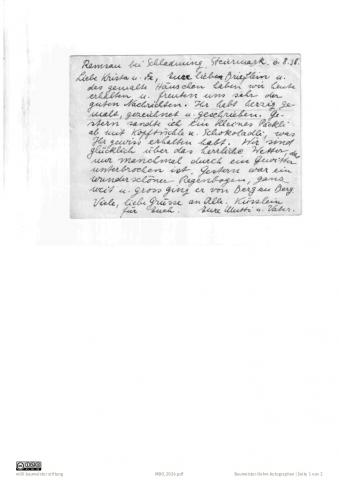 Ramsau bei Schladming, Steiermark. 6.8.38.
Liebe Krista u. Fe, Eure lieben Brieflein u.
das gemalte Häuschen haben wir heute
erhalten u. freuten uns sehr der
guten Nachrichten. Ihr habt herzig ge-
malt, gezeichnet u. geschrieben. Ge-
stern sandte ich Ein kleines Päckli
ab mit Kopftüchle u. Schokolädli, was
Ihr gewiss erhalten habt. Wir sind
glücklich über das herrliche Wetter, das
nur manchmal durch ein Gewitter
unterbrochen ist. Gestern war ein
wunderschöner Regenbogen, ganz
weit u. gross ging er von Berg zu Berg
Viele, liebe Grüsse an Alle. Küsslein
für Euch. Eure Mutti u. Vater.
willi baumeister stiftung
Seite 1 von 2